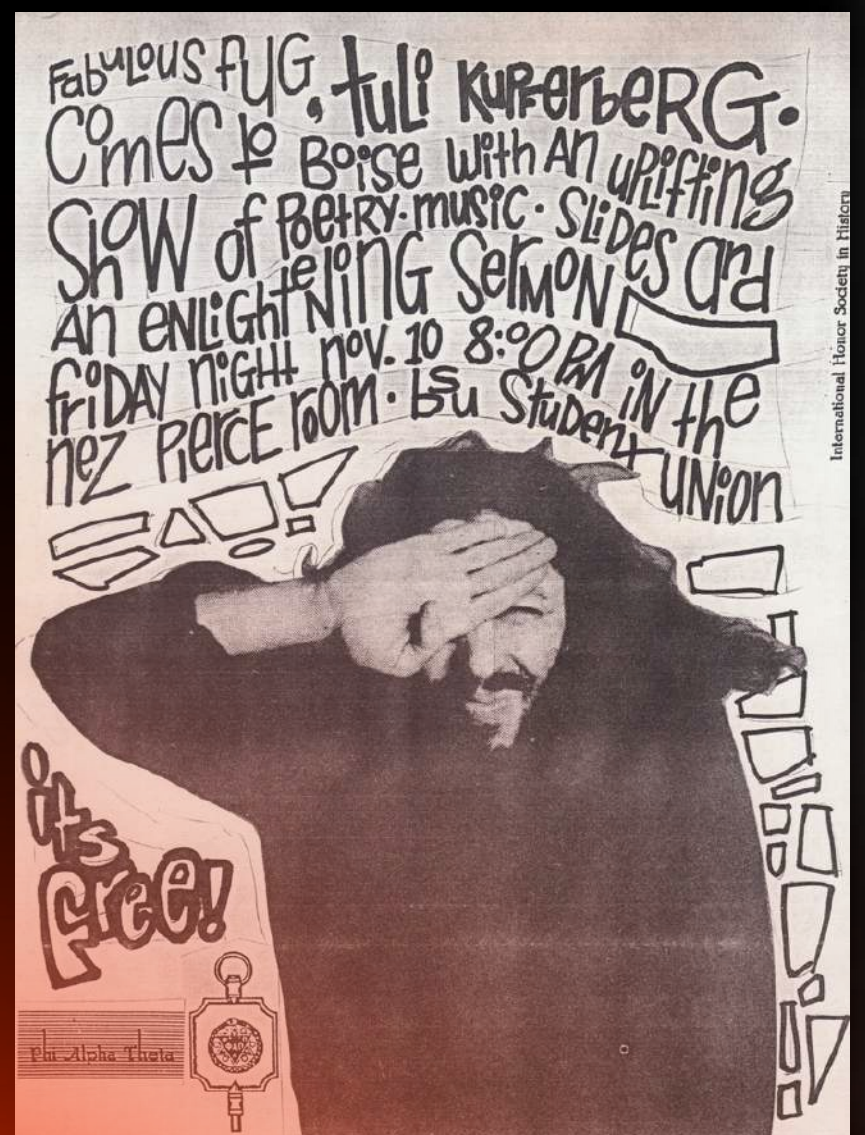 Fabulous fUG, tuli Kupferberg.
Comes to Boise with An uplifting
Show of Poetry · music · Slides and
An enlightening Sermon
friday night nov. 10 8:00 PM in the
nez Pierce room · bsu Student Union
its
free!
Phi Alpha Theta
International Honor Society in History